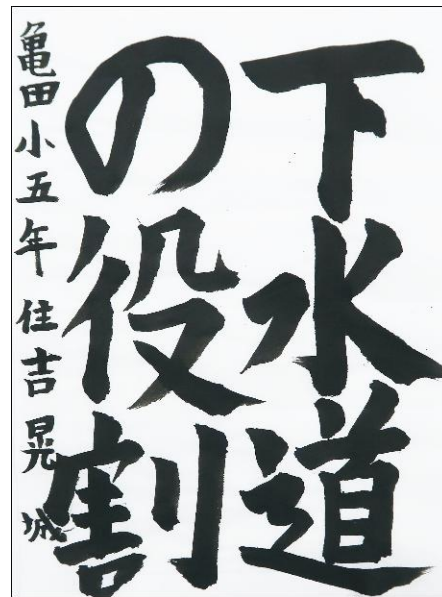 下水道
の役割
亀田小五年住吉晃城